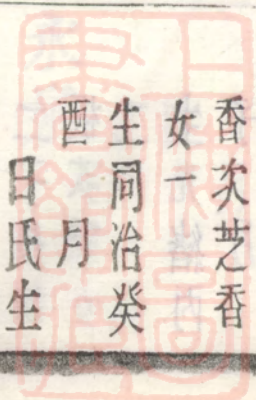 香次芝香
女一
生同治癸
酉　月
日氏生